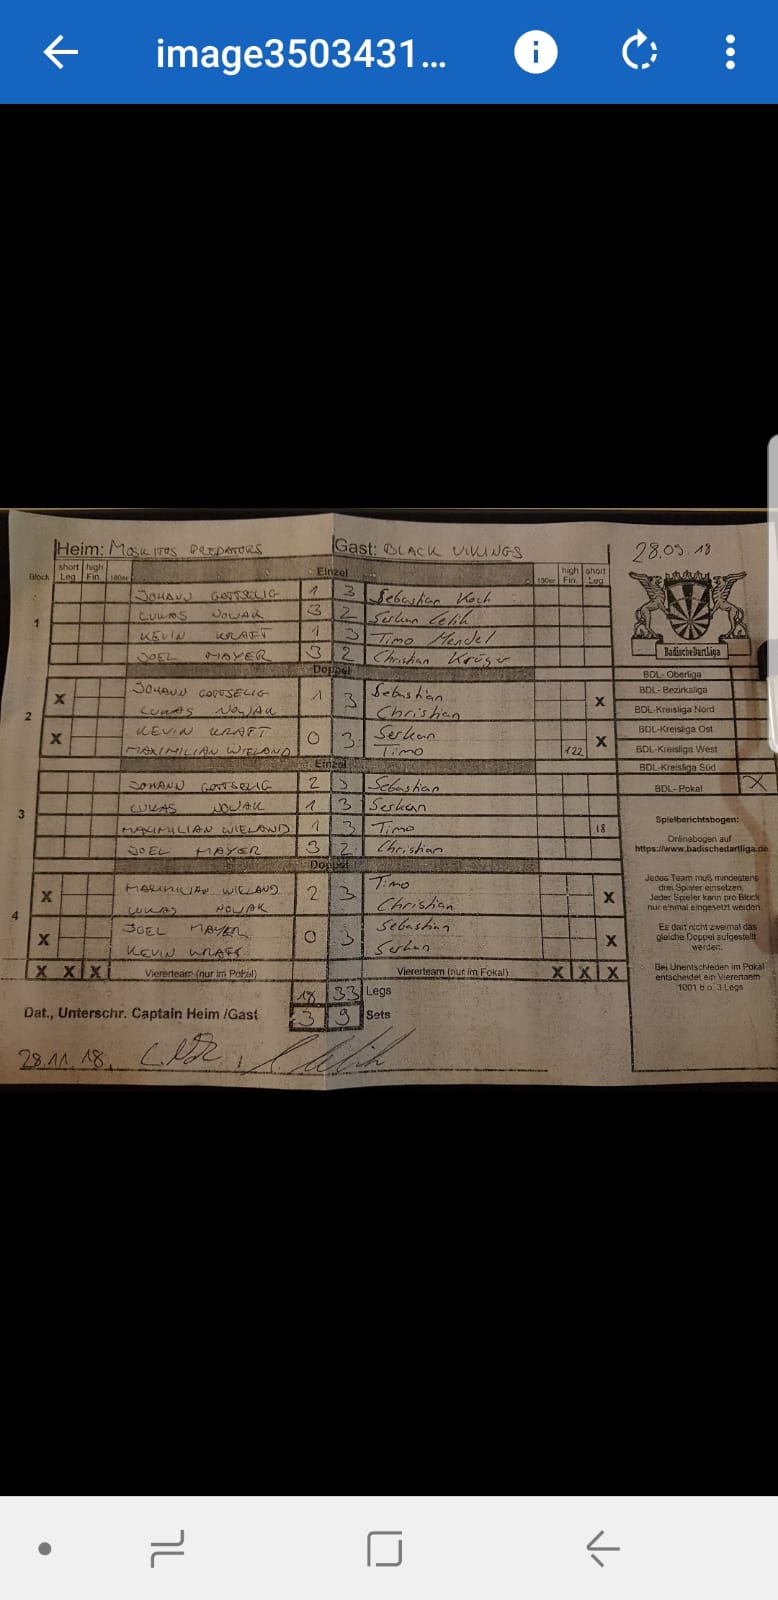 image3503431...
Heim: MOSKITOS PREDATORS Gast: BLACK VIKINGS 28.09.18
Block short Leg high Fin. 180er Einzel 180er high Fin. short Leg
1
JOHANN GOTTSELIG 1 3 Sebastian Koch
LUKAS NOWAK 3 2 Serkan Celik
KEVIN KRAFT 1 3 Timo Mendel
JOEL MAYER 3 2 Christian Krüger
BadischeDartLiga
Doppel
2
X JOHANN GOTTSELIG 1 3 Sebastian X
LUKAS NOWAK Christian
X KEVIN KRAFT 0 3 Serkan X
MAXIMILIAN WIELAND Timo 122
Einzel
3
JOHANN GOTTSELIG 2 3 Sebastian
LUKAS NOWAK 1 3 Serkan
MAXIMILIAN WIELAND 1 3 Timo 18
JOEL MAYER 3 2 Christian
Doppel
4
X MAXIMILIAN WIELAND 2 3 Timo X
LUKAS NOWAK Christian
X JOEL MAYER 0 3 Sebastian X
KEVIN KRAFT Serkan
X X X Viererteam (nur im Pokal) Viererteam (nur im Pokal) X X X
18 33 Legs
Dat., Unterschr. Captain Heim /Gast 3 9 Sets
28.11.18.
BDL- Oberliga
BDL- Bezirkaliga
BDL-Kreisliga Nord
BDL-Kreisliga Ost
BDL-Kreisliga West
BDL-Kreisliga Süd
BDL- Pokal X
Spielberichtsbogen:
Onlinebogen auf
https://www.badischedartliga.de
Jedes Team muß mindestens
drei Spieler einsetzen.
Jeder Spieler kann pro Block
nur einmal eingesetzt werden.
Es darf nicht zweimal das
gleiche Doppel aufgestellt
werden.
Bei Unentschieden im Pokal
entscheidet ein Viererteam
1001 b.o. 3 Legs